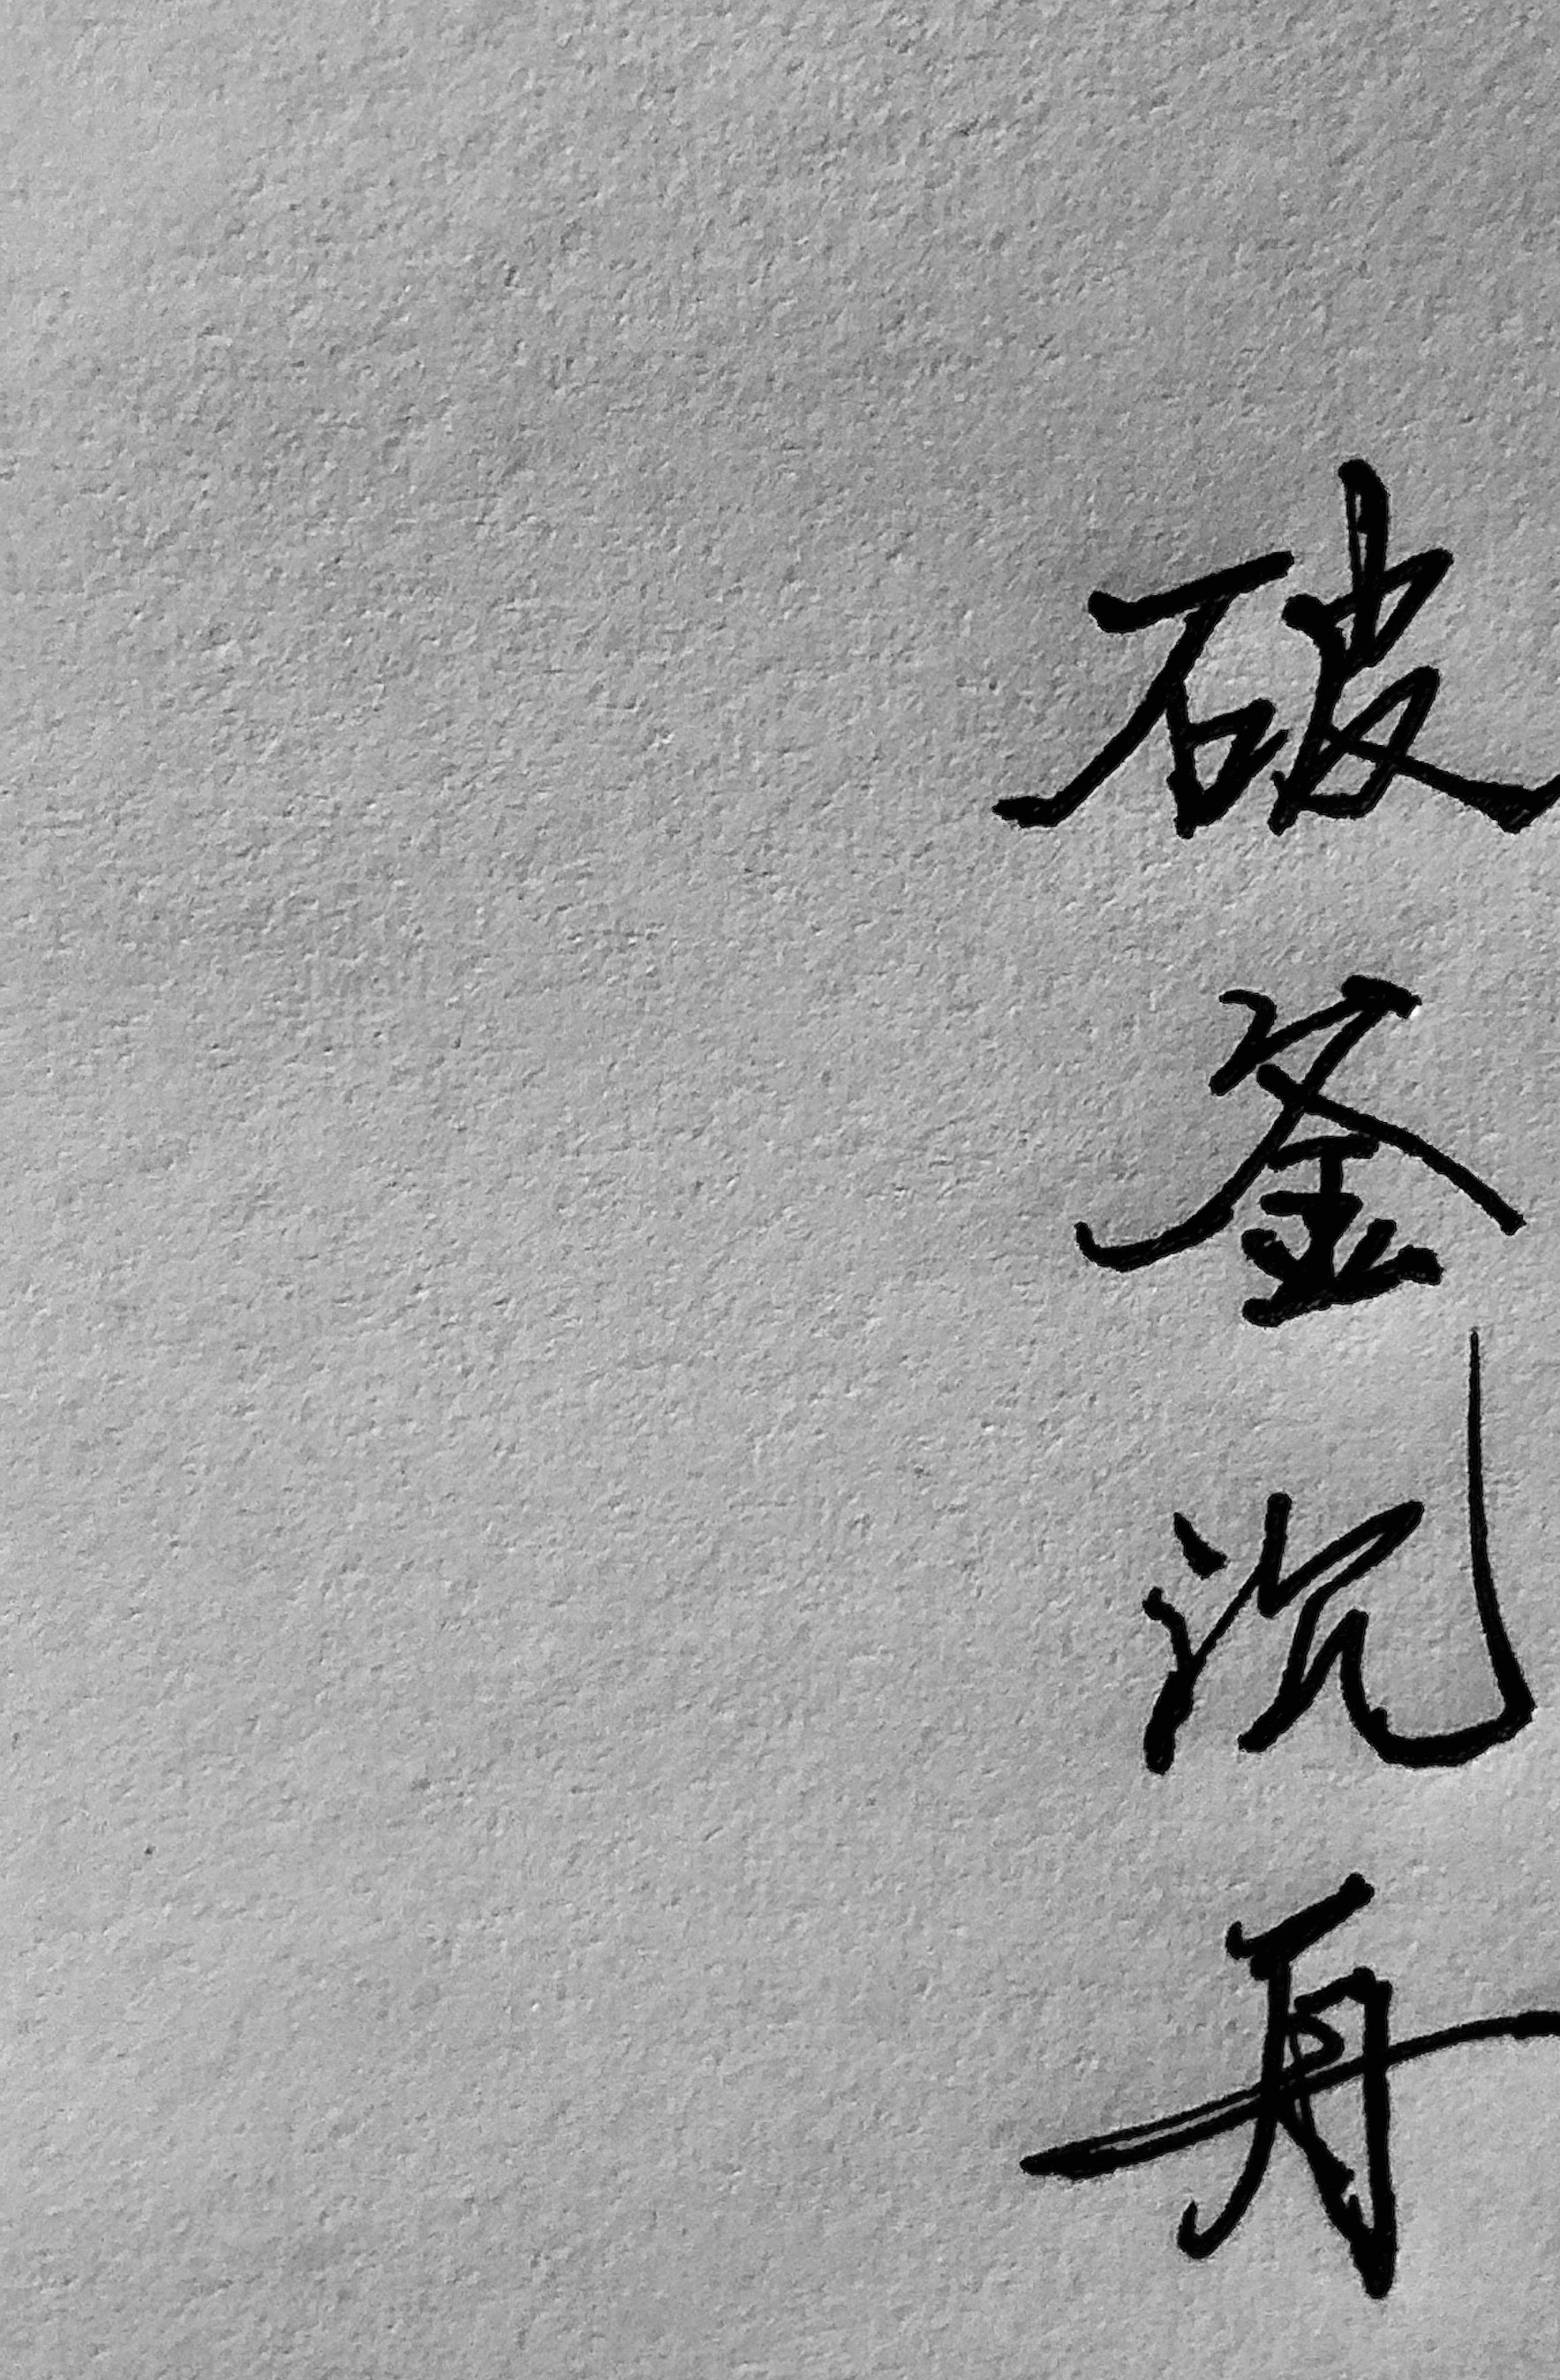 破釜沉舟